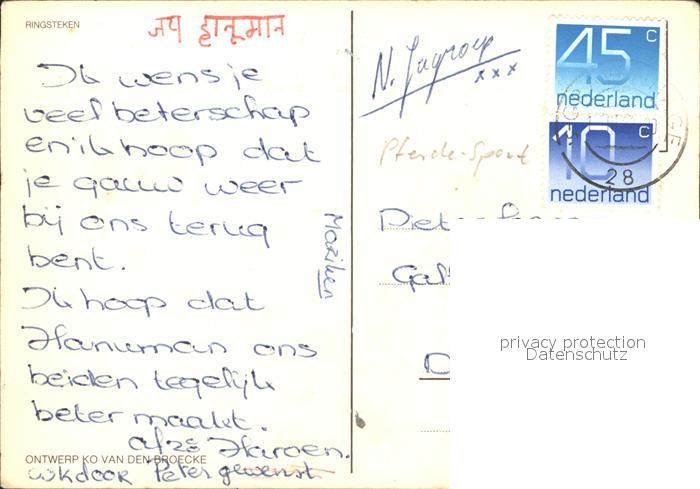 RINGSTEKEN
जय हानूमान
Ik wens je
veel beterschap
en ik hoop dat
je gauw weer
bij ons terug
bent.
Ik hoop dat
Hanuman ons
beiden tegelijk
beter maakt.
afz: Haroen.
ONTWERP KO VAN DEN BROECKE
ook door Peter gewenst
Mariken
N. Jagroep
xxx
Pferde-Sport
45 c
nederland
10 c
nederland
28
privacy protection
Datenschutz